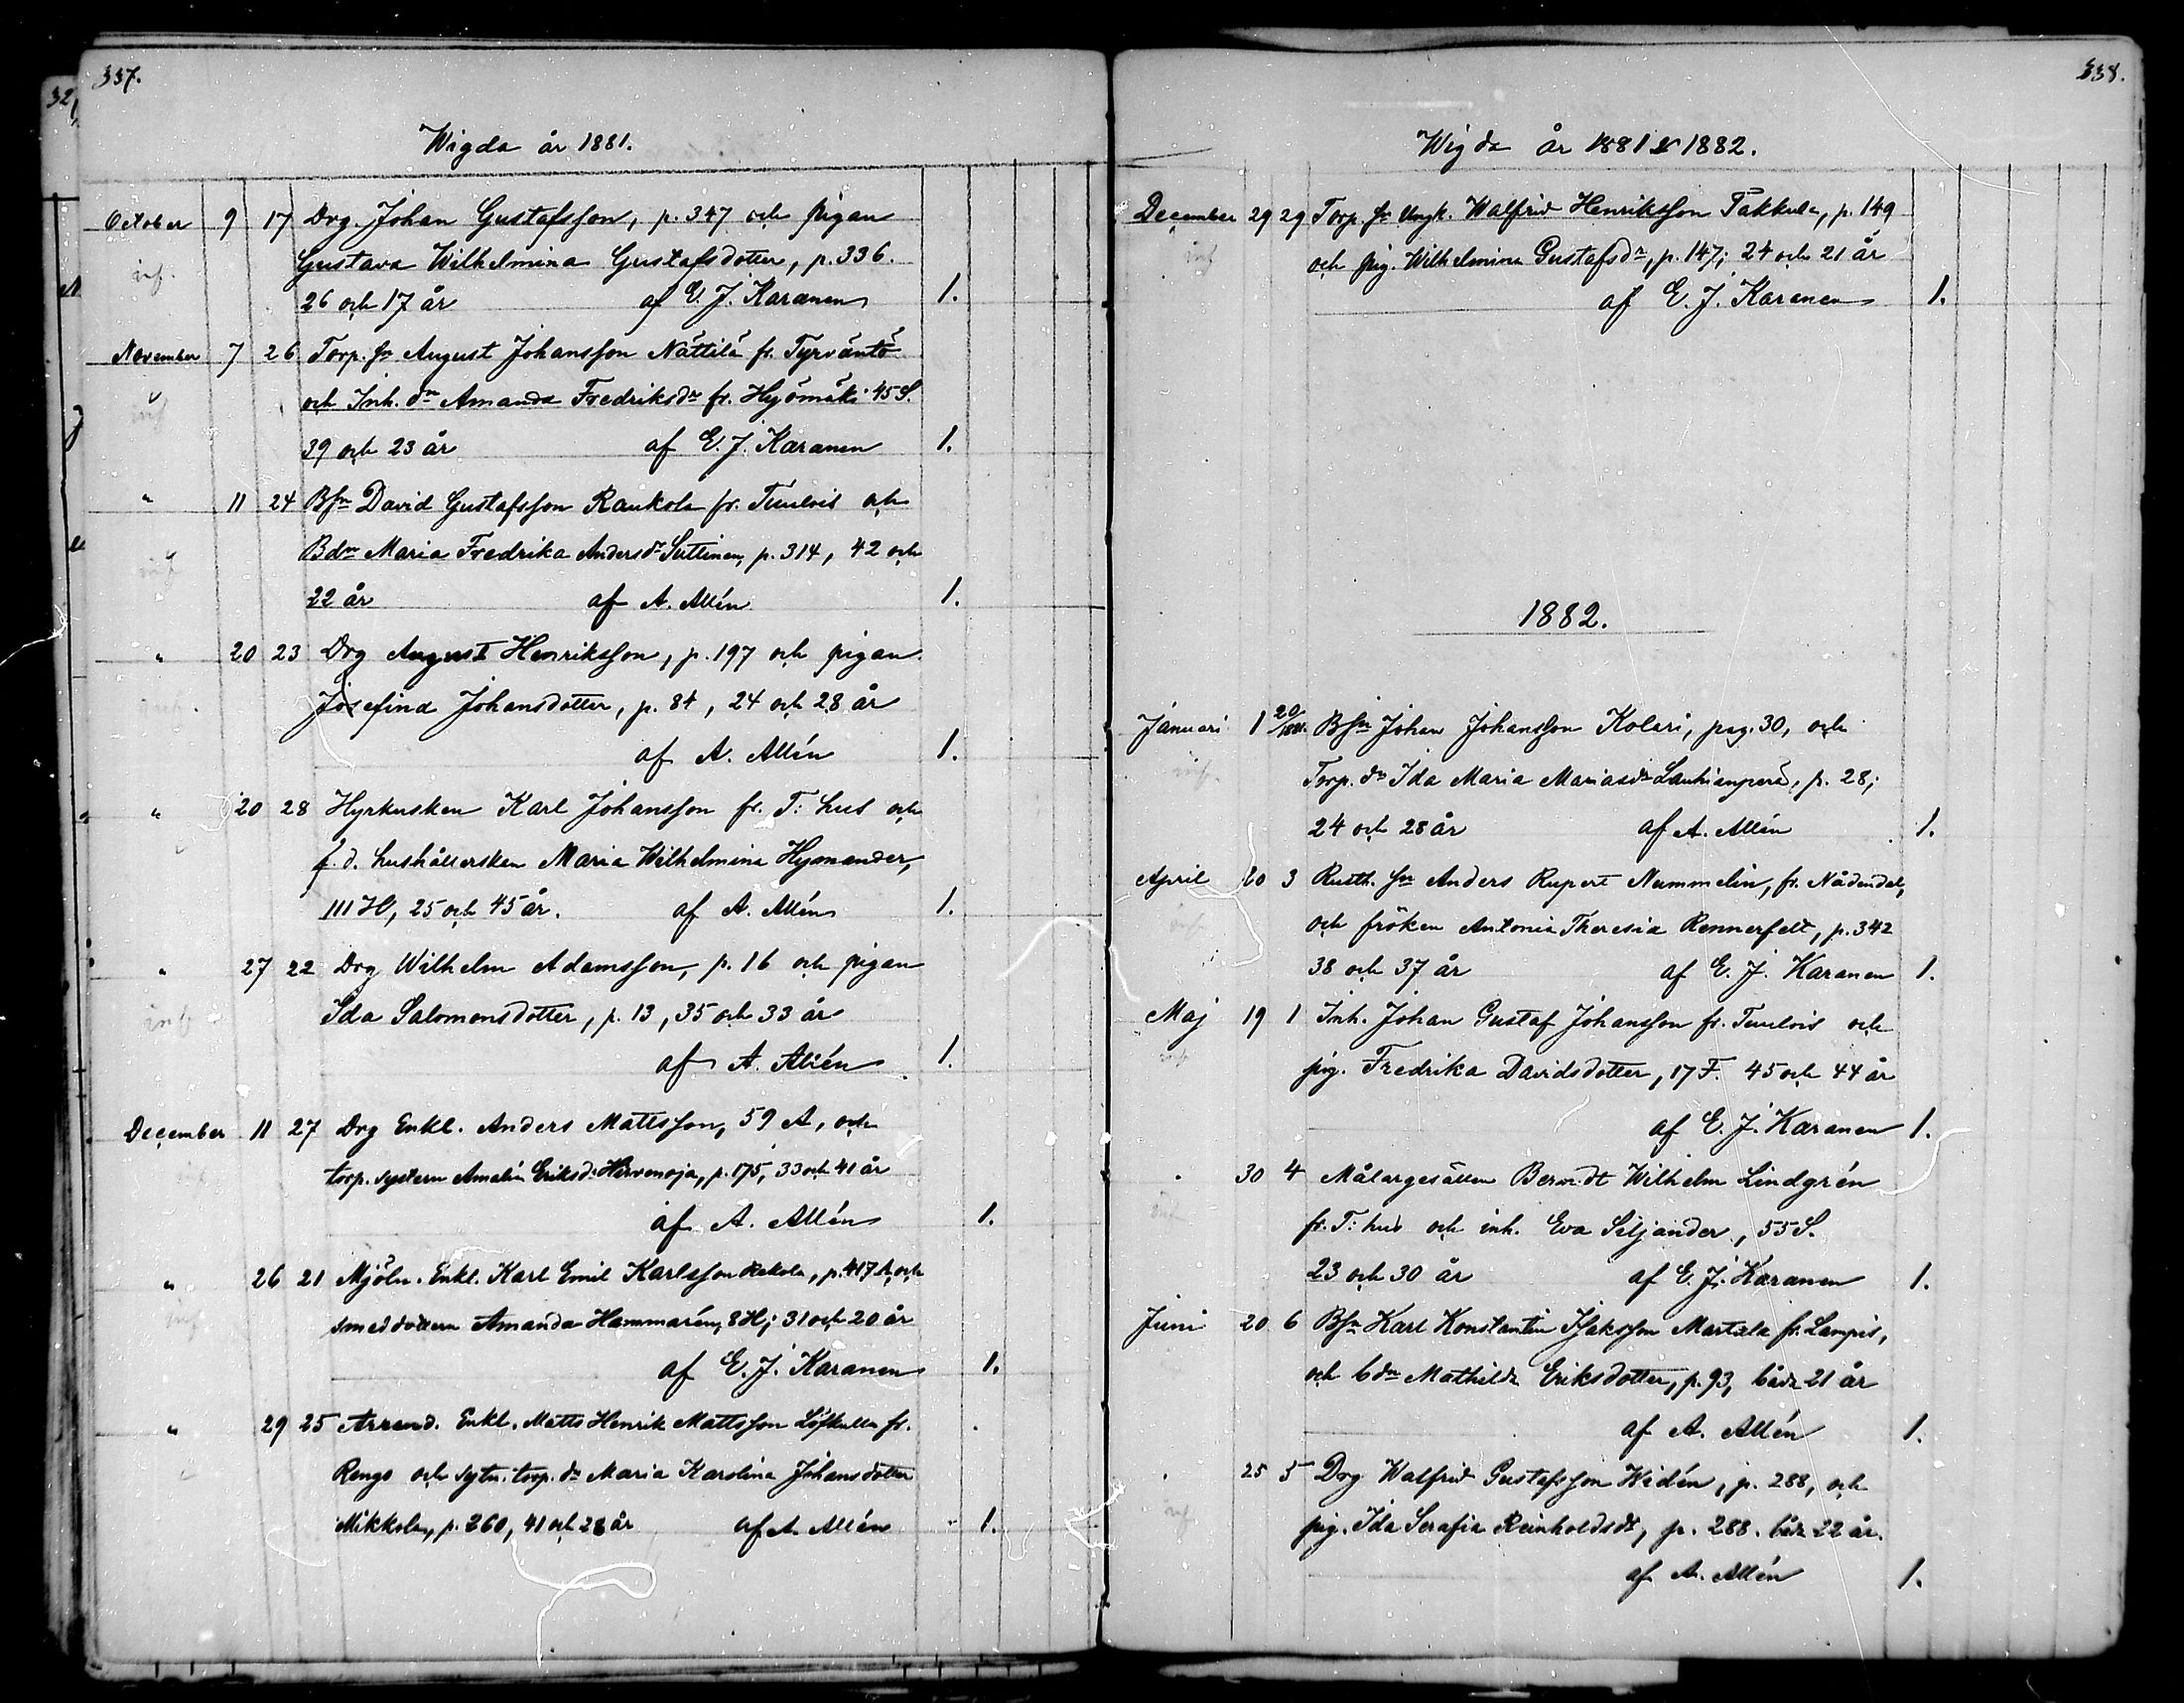 337.
Wigda år 1881.
October 9 17 Drg. Johan Gustafsson, p. 347 och pigan
inf. Gustava Wilhelmina Gustafsdotter, p. 336.
26 och 17 år af E. J. Karanen 1.
November 7 26 Torp. sn August Johansson Nättilä fr. Tyrväntö
inf och Inh. dn Amanda Fredriksdr fr. Hyömäki 45 S.
39 och 23 år af E. J. Karanen 1.
" 11 24 Bsn David Gustafsson Raukola fr. Tuulois och
inf Bdn Maria Fredrika Andersdr Suttinen, p. 314, 42 och
22 år af A. Allén 1.
" 20 23 Drg August Henriksson, p. 197 och pigan
inf. Josefina Johansdotter, p. 84, 24 och 28 år
af A. Allén 1.
" 20 28 Hyrkusken Karl Johansson fr. T: hus och
f. d. hushållerskan Maria Wilhelmina Hymander,
111 H, 25 och 45 år. af A. Allén 1.
" 27 22 Drg Wilhelm Adamsson, p. 16 och pigan
inf Ida Salomonsdotter, p. 13, 35 och 33 år
af A. Allén 1.
December 11 27 Drg Enkl. Anders Mattsson, 59 A, och
inf torp. systern Amalia Eriksdr Hirvenoja, p. 175, 33 och 41 år
af A. Allén 1.
" 26 21 Mjöln. Enkl. Karl Emil Karlsson Kekola, p. 417 A och
inf smeddottern Amanda Hammarén, 8 H; 31 och 20 år
af E. J. Karanen 1.
" 29 25 Arrend. Enkl. Matts Henrik Mattsson Löfkulla fr.
Rengo och sytn. torp. dr Maria Karolina Johansdotter
Mikkola, p. 260, 41 och 28 år af A. Allén 1.
338.
Wigda år 1881 & 1882.
December 29 29 Torp. sn Ungk. Walfrid Henriksson Pakkula, p. 149
inf och pig. Wilhelmina Gustafsdr, p. 147; 24 och 21 år
af E. J. Karanen 1.
1882.
Januari 1 20/1881. Bsn Johan Johansson Kolari, pag. 30, och
inf. Torp. dr Ida Maria Mariasdr Lauhianperä, p. 28;
24 och 28 år af A. Allén 1.
April 20 3 Rusth. sn Anders Rupert Nummelin, fr. Nådendal,
inf. och fröken Antonia Theresia Rennerfelt, p. 342
38 och 37 år af E. J. Karanen 1.
Maj 19 1 Inh. Johan Gustaf Johansson fr. Tuulois och
inf pig. Fredrika Davidsdotter, 17 F. 45 och 44 år
af E. J. Karanen 1.
" 30 4 Målargesällen Berndt Wilhelm Lindgrén
inf fr. T: hus och inh. Eva Siljander, 55 S.
23 och 30 år af E. J. Karanen 1.
Juni 20 6 Bsn Karl Konstantin Isaksson Martala fr. Lampis,
och bdn Mathilda Eriksdotter, p. 93, båda 21 år
af A. Allén 1.
" 25 5 Drg Walfrid Gustafsson Widén, p. 288, och
inf pig. Ida Serafia Reinholdsdr, p. 288. båda 22 år.
af A. Allén 1.